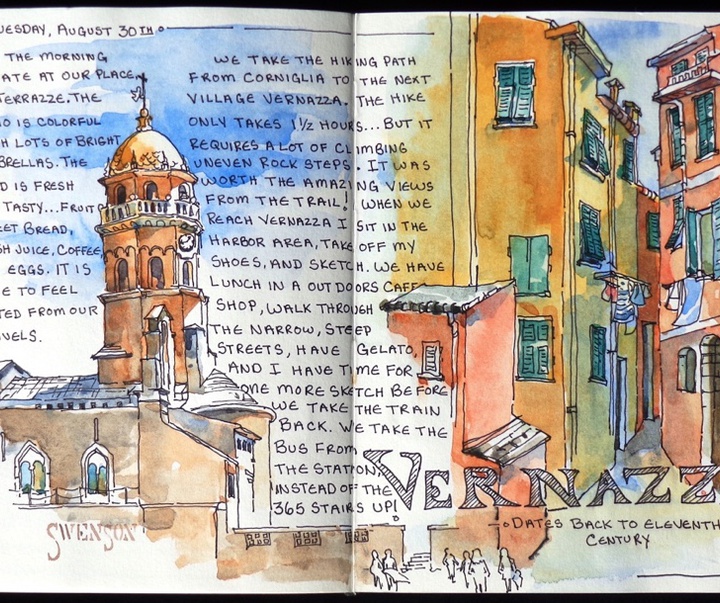 UESDAY, AUGUST 30TH
THE MORNING
ATE AT OUR PLACE,
TERRAZZE. THE
IO IS COLORFUL
H LOTS OF BRIGHT
BRELLAS. THE
D IS FRESH
TASTY...FRUIT
EET BREAD,
SH JUICE, COFFEE,
EGGS. IT IS
E TO FEEL
TED FROM OUR
VELS.
WE TAKE THE HIKING PATH
FROM CORNIGLIA TO THE NEXT
VILLAGE VERNAZZA. THE HIKE
ONLY TAKES 1½ HOURS... BUT IT
REQUIRES A LOT OF CLIMBING
UNEVEN ROCK STEPS. IT WAS
WORTH THE AMAZING VIEWS
FROM THE TRAIL! WHEN WE
REACH VERNAZZA I SIT IN THE
HARBOR AREA, TAKE OFF MY
SHOES, AND SKETCH. WE HAVE
LUNCH IN A OUTDOORS CAFE
SHOP, WALK THROUGH
THE NARROW, STEEP
STREETS, HAVE GELATO,
AND I HAVE TIME FOR
ONE MORE SKETCH BEFORE
WE TAKE THE TRAIN
BACK. WE TAKE THE
BUS FROM
THE STATION
INSTEAD OF THE
365 STAIRS UP!
SWENSON
VERNAZZ
DATES BACK TO ELEVENTH
CENTURY